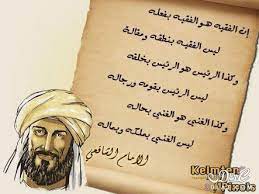 إن الفقيه هو الفقيه بفعله
ليس الفقيه بنطقه ومقاله
وكذا الرئيس هو الرئيس بخلقه
ليس الرئيس بقومه ورجاله
وكذا الغني هو الغني بحاله
ليس الغني بملكه وبماله
الإمام الشافعي
Pixels